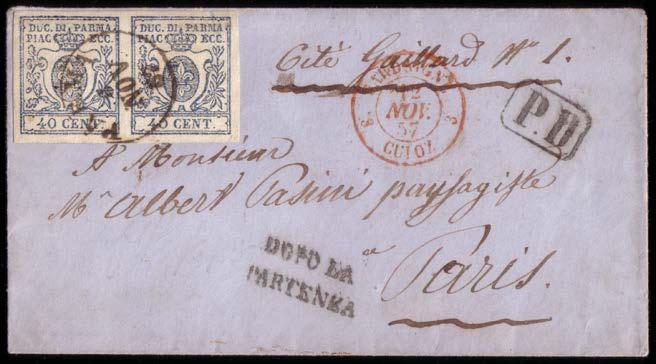 DUC. DI PARMA
PIAC. ECC.
40 CENT.
DUC. DI PARMA
PIAC. ECC.
40 CENT.
NOV
Cité Gaillard N° 1.
SARDAIGNE
12
NOV.
57
3 CULOZ 3
P.D
A Monsieur
Mr Albert Pasini paysagiste
a
Paris.
DOPO LA
PARTENZA